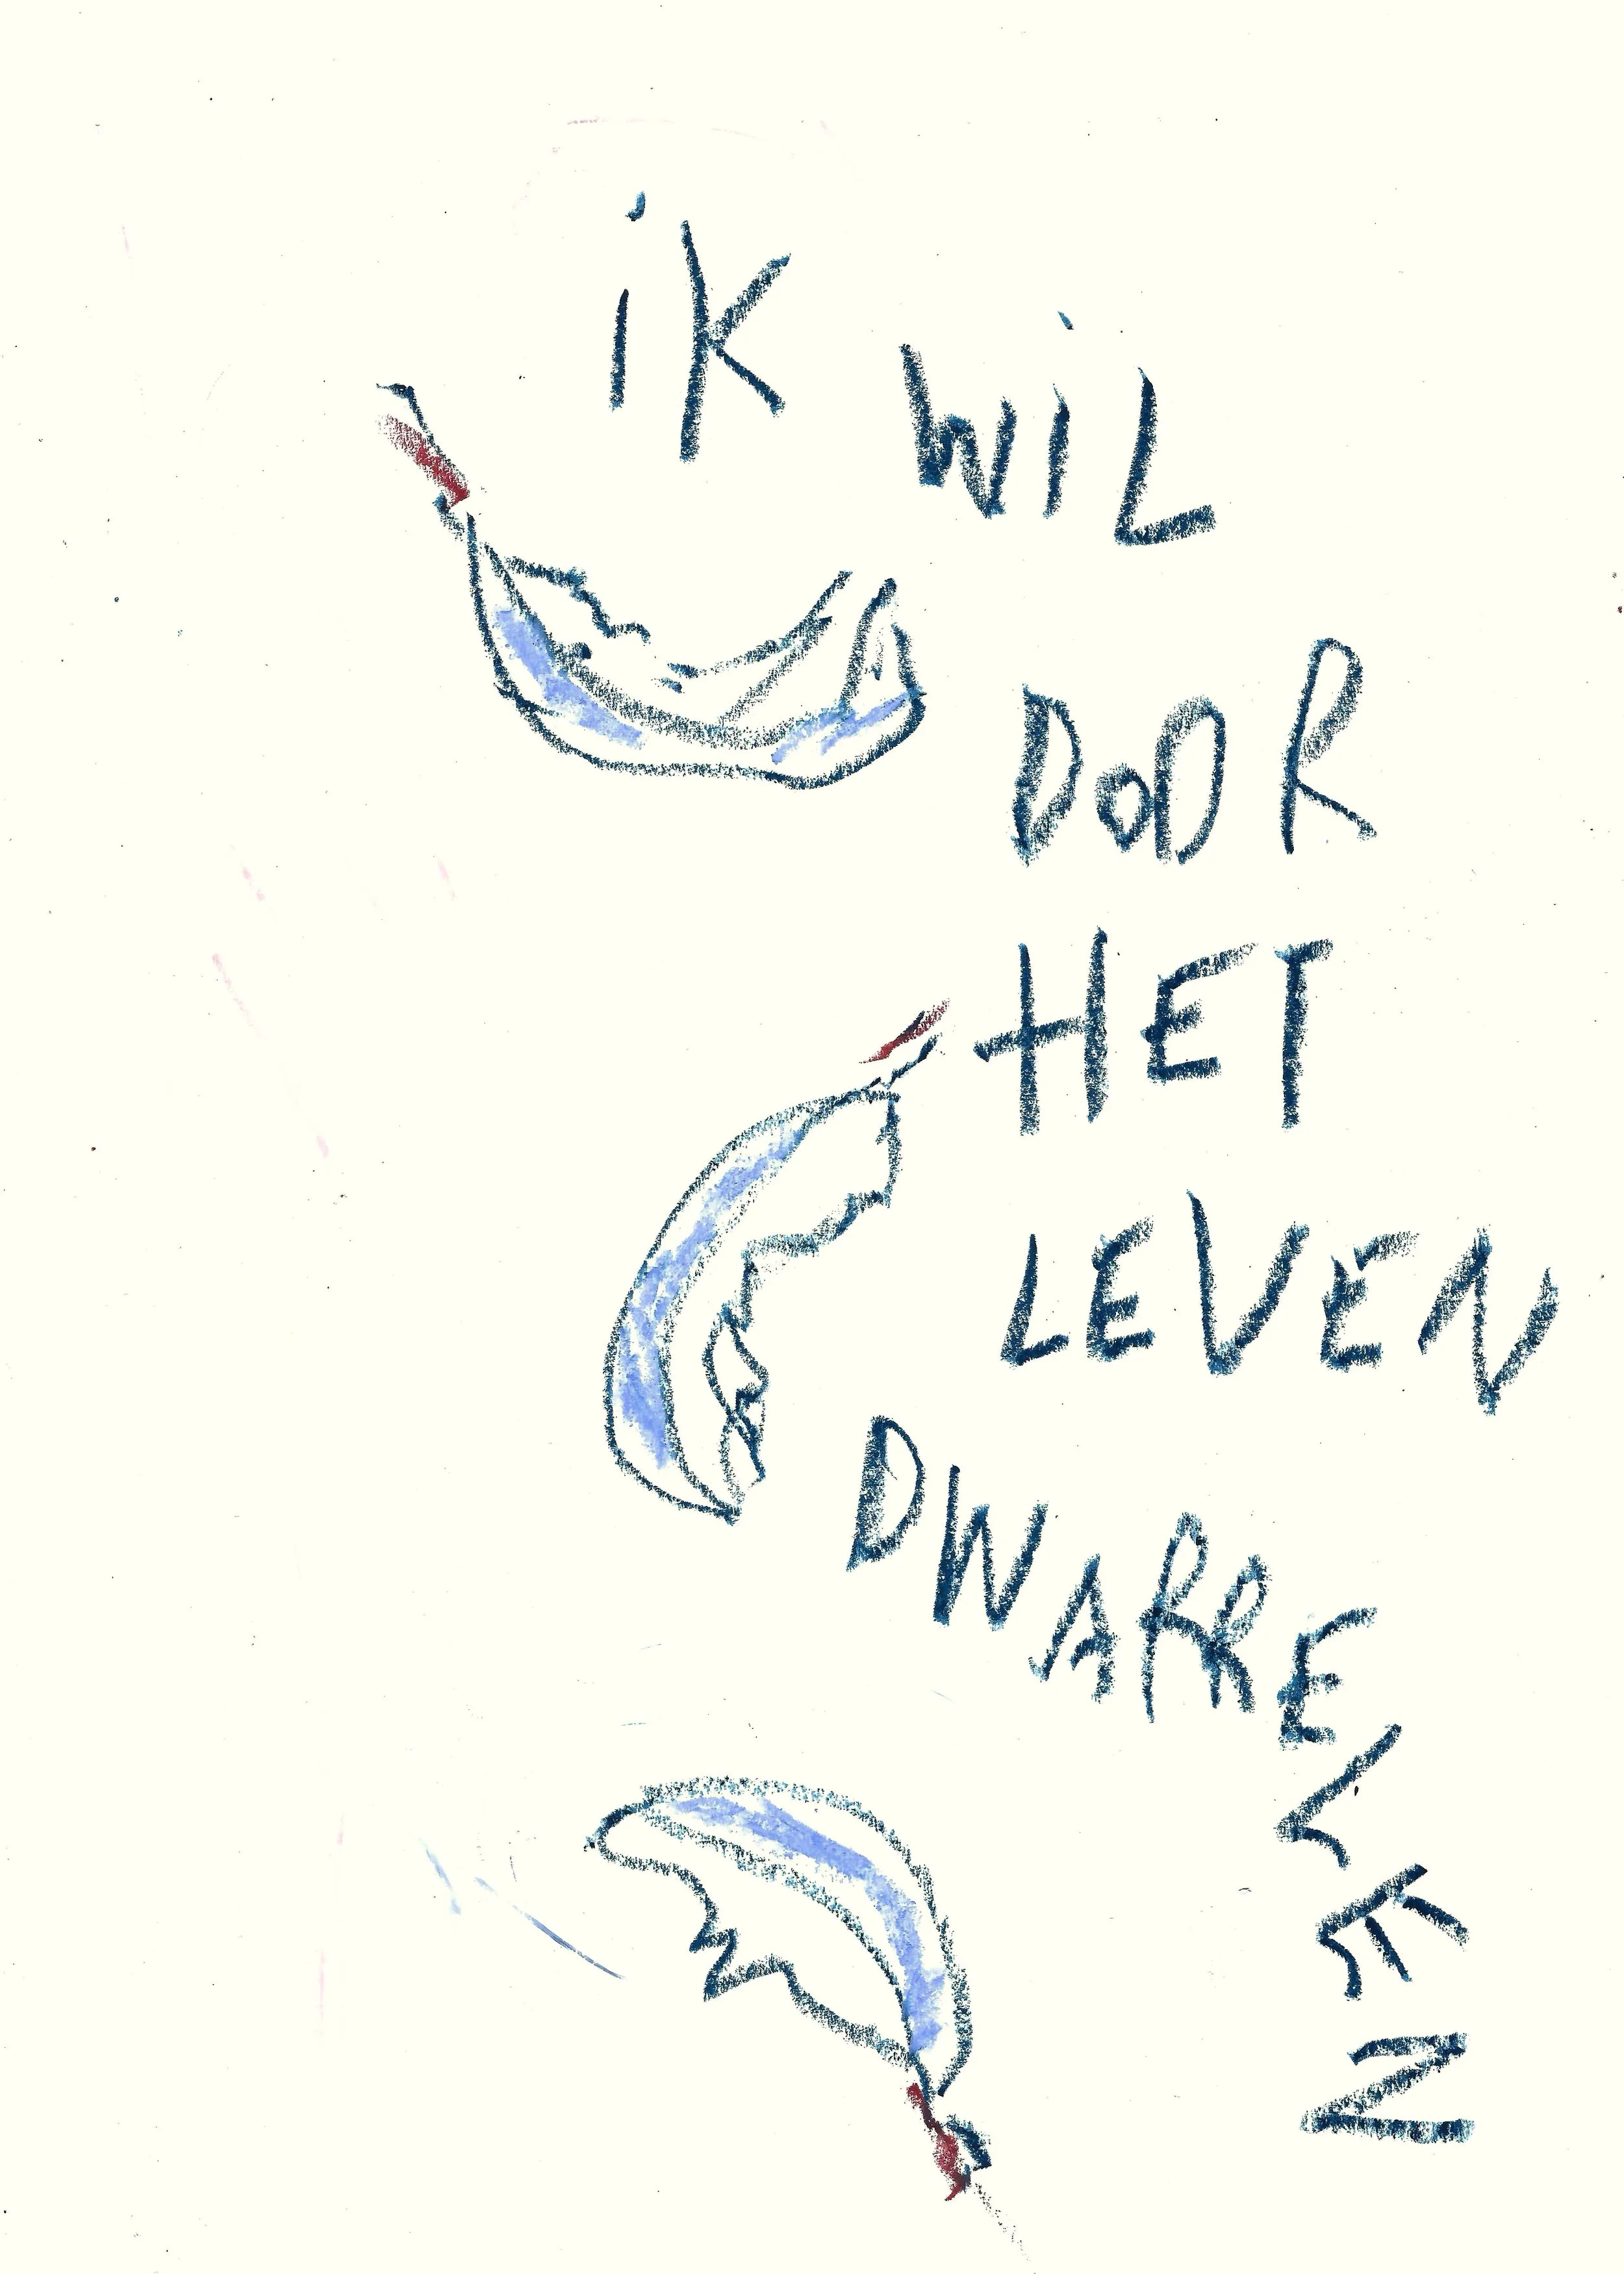 iK WiL
DOOR
HET
LEVEN
DWARRELEN